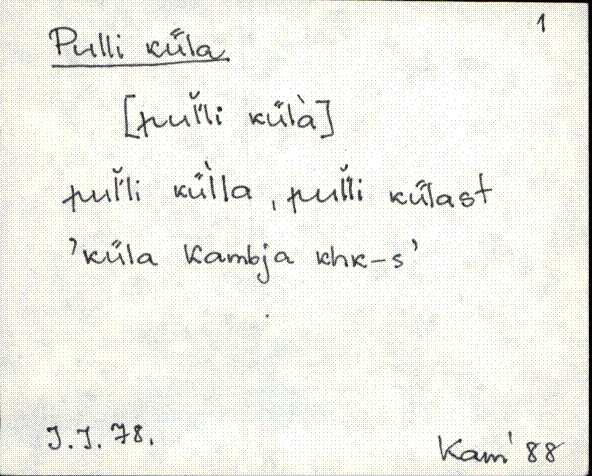 1
Pulli küla
[pul̆'li külà]
pul̆'li kül̀la, pul̆'li külast
'küla Kambja khk-s'
J.J. 78.
Kam' 88